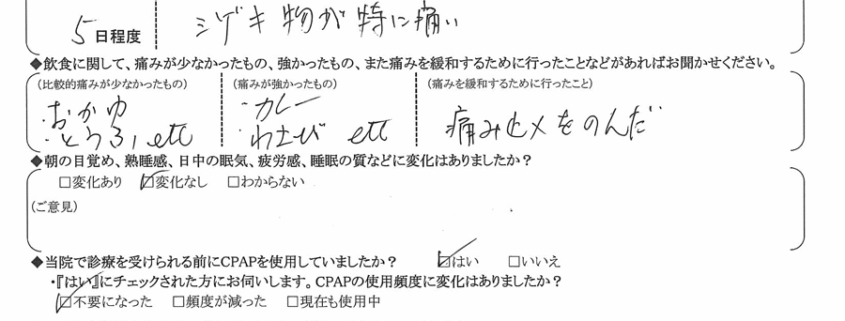 5日程度 シゲキ物が特に痛い
◆飲食に関して、痛みが少なかったもの、強かったもの、また痛みを緩和するために行ったことなどがあればお聞かせください。
(比較的痛みが少なかったもの) (痛みが強かったもの) (痛みを緩和するために行ったこと)
・おかゆ ・カレー 痛み止メをのんだ
・とうふ, etc ・わさび etc
◆朝の目覚め、熟睡感、日中の眠気、疲労感、睡眠の質などに変化はありましたか?
□変化あり ☑変化なし □わからない
(ご意見)
◆当院で診療を受けられる前にCPAPを使用していましたか? ☑はい □いいえ
・『はい』にチェックされた方にお伺いします。CPAPの使用頻度に変化はありましたか?
☑不要になった □頻度が減った □現在も使用中